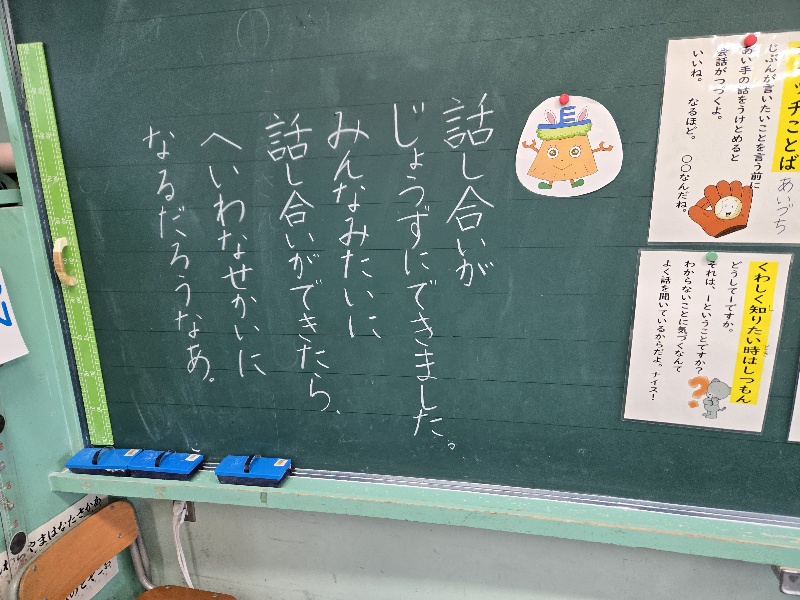 話し合いが
じょうずにできました。
みんなみたいに
話し合いができたら、
へいわなせかいに
なるだろうなあ。
ッチことば
あいづち
じぶんが言いたいことを言う前に
あい手の話をうけとめると
会話がつづくよ。
いいね。 なるほど。 〇〇なんだね。
くわしく知りたい時はしつもん
どうしてーですか。
それは、ーということですか?
わからないことに気づくなんて
よく話を聞いているからだよ。ナイス!